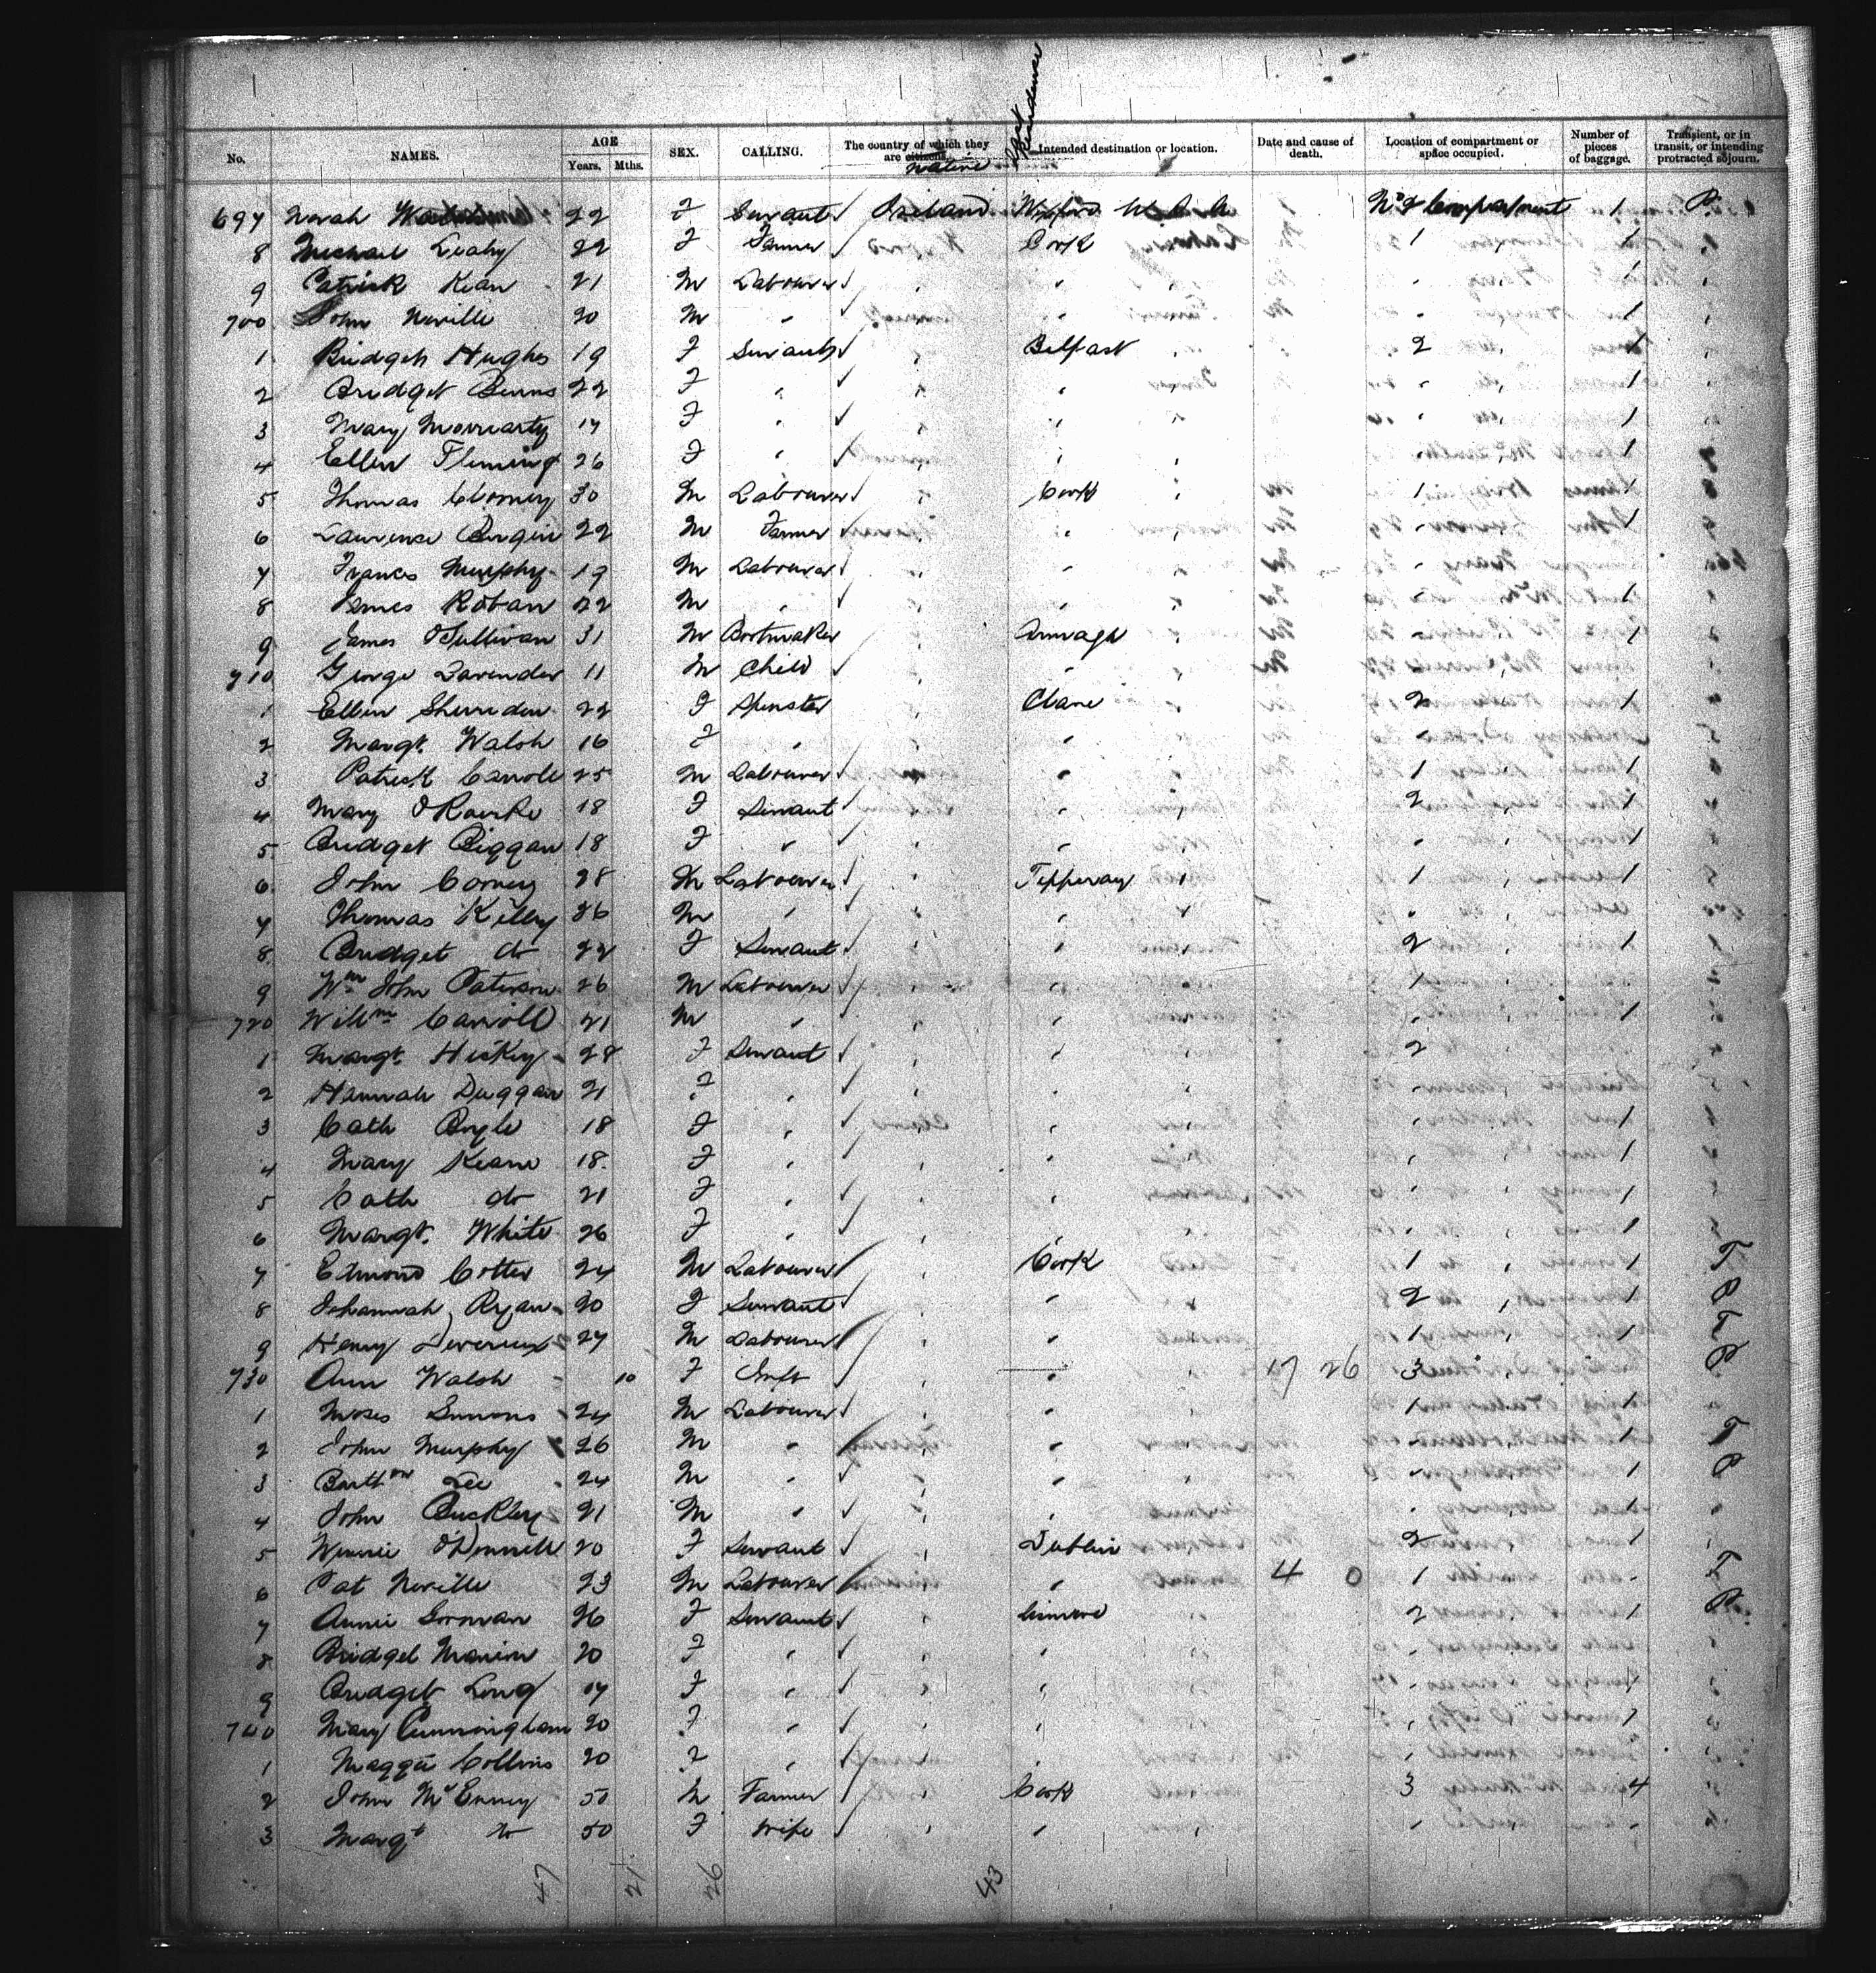 Last Residence
No. NAMES. AGE Years. Mths. SEX. CALLING. The country of which they are citizens. Native Intended destination or location. Date and cause of death. Location of compartment or space occupied. Number of pieces of baggage. Transient, or in transit, or intending protracted sojourn.
697 Norah 22 F Servant Ireland U.S.A. No 2 Compartment 1 P.
8 Michael Leahy 22 F Farmer " Cork 1 1
9 Patrick Kean 21 M Labourer " " " 1
700 John Neville 20 M " " " " 1
1 Bridget Hughes 19 F Servant " Belfast " 2 1
2 Bridget Burns 22 F " " " " 1
3 Mary Morriarty 17 F " " " " 1
4 Ellen Fleming 26 F " " " " " 1
5 Thomas 30 M Labourer " Cork " 1 1
6 Laurence Bergin 22 M Farmer " " " " 1
7 Frances Murphy 19 M Labourer " " " "
8 James 22 M " " " " " 1
9 James O'Sullivan 31 M Bootmaker " Armagh " " 1
710 George Lavender 11 M Child " " "
1 Ellen Sheridan 22 F Spinster " Clare 2 1
2 Margt. Walsh 16 F " " " " 1
3 Patrick Carroll 25 M Labourer " " " 1 1
4 Mary O'Rourke 18 F Servant " " " 2 1
5 Bridget Biggan 18 F " " " " 1
6 John 28 M Labourer " Tipperary " 1 1
7 Thomas Kelly 26 M " " " " "
8 Bridget do 22 F Servant " " 2 1
9 Wm John Paterson 26 M Labourer " " 1
720 Willm Carroll 21 M " " " " 1
1 Margt. Hickey 28 F Servant " " " 2
2 Hannah Duggan 21 F " " " " "
3 Cath Boyle 18 F " " " " " 1
4 Mary Keane 18 F " " " " 1
5 Cath do 21 F " " " " 1
6 Margt. White 26 F " " " " " 1
7 Edmond Cotter 24 M Labourer " Cork 1 1 T
8 Johannah Ryan 20 F Servant " " " 2 1 P
9 Henry Devereux 27 M Labourer " " 1 1 T
730 Ann Walsh 10 F Inft " " " 17 26 3 " P
1 Moses 24 M Labourer " " 1 1
2 John Murphy 26 M " " " " 1 T
3 Bartw Lee 24 M " " " " " 1 P
4 John Buckley 21 M " " " " 1
5 Winnie O'Donnell 20 F Servant " Dublin 2 1
6 Pat Neville 23 M Labourer " " 4 0 1 " T
7 Annie Gorman 26 F Servant " " 2 1 P.
8 Bridget 20 F " " " "
9 Bridget Long 17 F " " " " 1
740 Mary Cunningham 20 F " " " " 1
1 Maggie Collins 20 F " " " "
2 John 50 M Farmer " Cork 3 4
3 Margt do 50 F Wife " " " " "
47 21 26 43